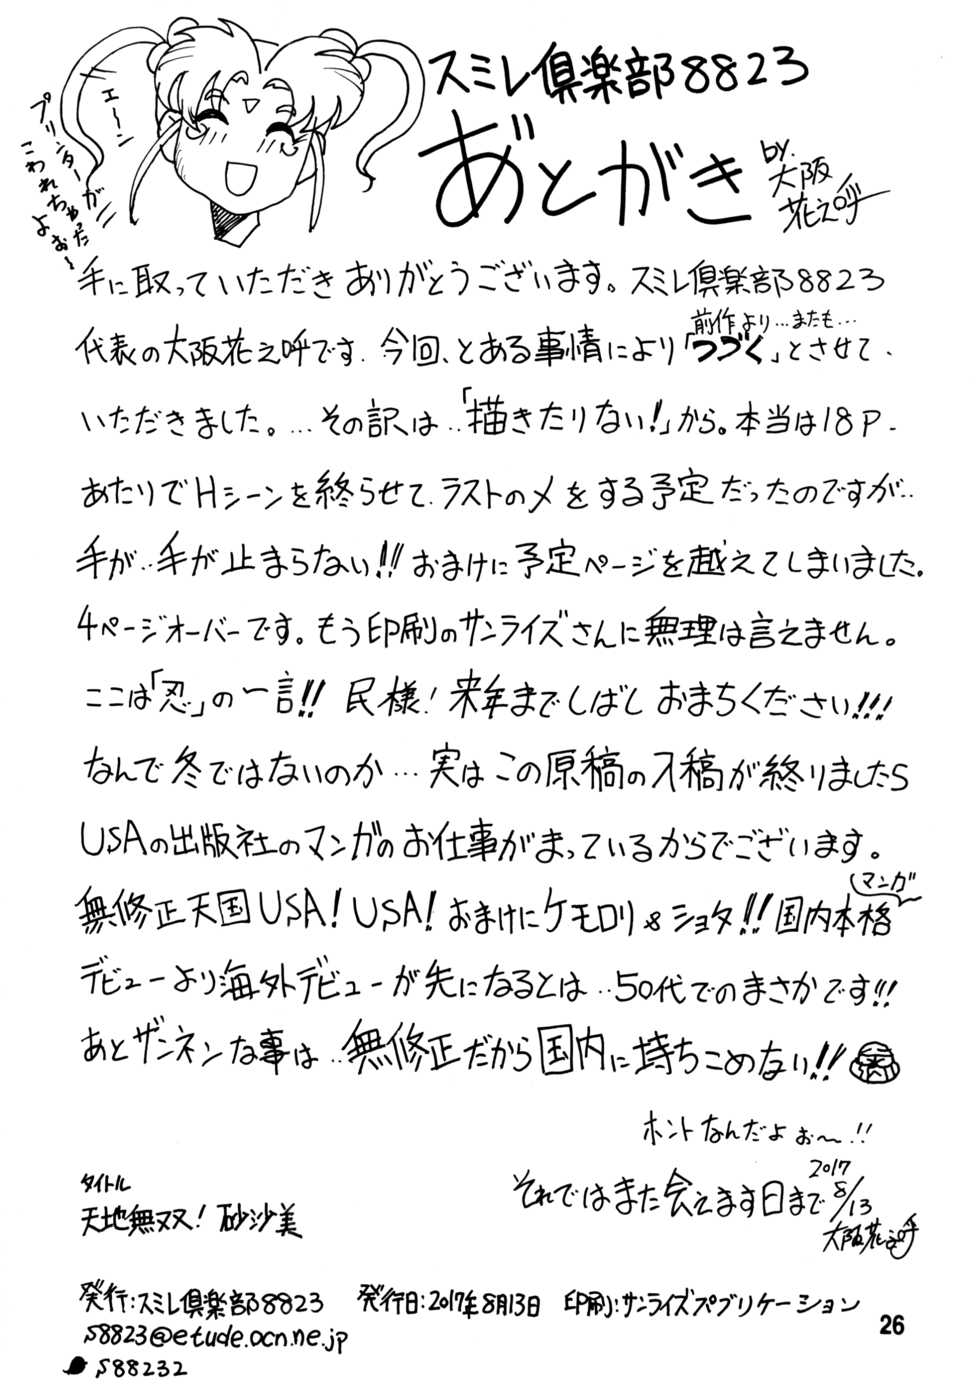 スミレ倶楽部8823
あとがき
by.大阪花之呼
エーン
プリンターが
こわれちゃった
よぉ〜
手に取っていただきありがとうございます。スミレ倶楽部8823
代表の大阪花之呼です.今回、とある事情により「つづく」とさせて、
前作より…またも…
いただきました。…その訳は‥「描きたりない!」から。本当は18P-
あたりでHシーンを終らせて、ラストのメをする予定だったのですが‥
手が‥手が止まらない!!おまけに予定ページを越えてしまいました.
4ページオーバーです。もう印刷のサンライズさんに無理は言えません。
ここは「忍」の一言!!民様!来年までしばしおまちください!!!
なんで冬ではないのか…実はこの原稿の入稿が終りましたら
USAの出版社のマンガのお仕事がまっているからでございます。
無修正天国USA!USA!おまけにケモロリ&ショタ!!国内本格
マンガ
デビューより海外デビューが先になるとは‥50代でのまさかです!!
あとザンネンな事は‥無修正だから国内に持ちこめない!!
ホントなんだよぉ〜!!
それではまた会えます日まで
2017
8/13
大阪花之呼
タイトル
天地無双!砂沙美
発行:スミレ倶楽部8823 発行日:2017年8月13日 印刷:サンライズパブリケーション
S8823@etude.ocn.ne.jp
S88232
26